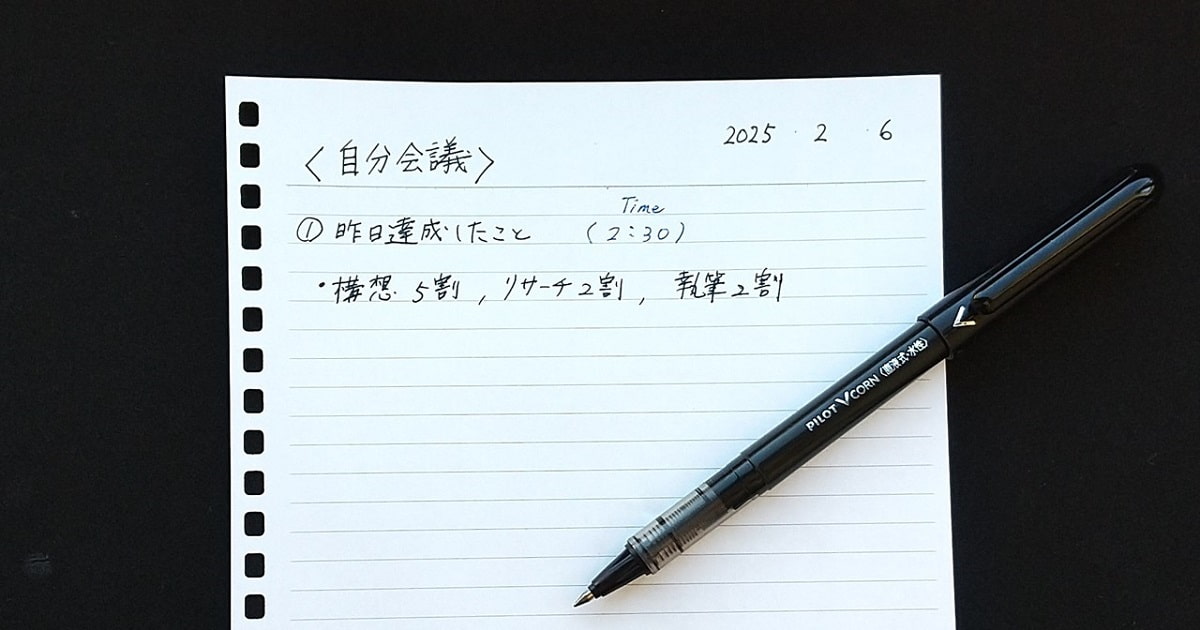 2025 . 2 . 6
〈自分会議〉
Time
① 昨日達成したこと (2:30)
・構想 5割 , リサーチ2割 , 執筆2割
PILOT VCORN 〈直液式・水性〉